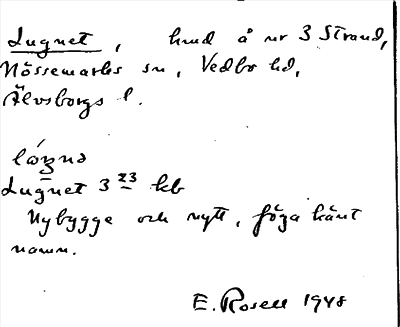 Lugnet, hmd å nr 3 Strand,
Nössemarks sn, Vedbo hd,
Älvsborgs l.
Lugnet 3 23 kb
Nybygge och nytt, föga känt
namn.
E. Rosell 1948